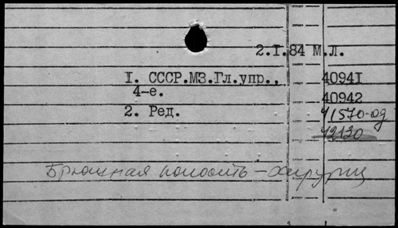 2.I.84 М.Л.
I. СССР.МЗ.Гл.упр., 40941
4-е. 40942
2. Ред. 41570-од
42130
Брюшная полость - хирург